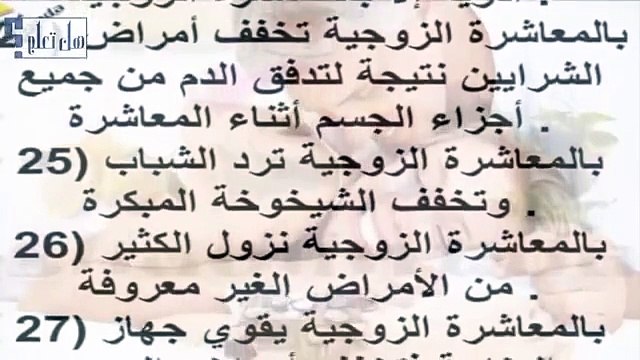 هل تعلم ؟
بالمعاشرة الزوجية تخفف أمراض
الشرايين نتيجة لتدفق الدم من جميع
. أجزاء الجسم أثناء المعاشرة
بالمعاشرة الزوجية ترد الشباب (25
. وتخفف الشيخوخة المبكرة
بالمعاشرة الزوجية نزول الكثير (26
. من الأمراض الغير معروفة
بالمعاشرة الزوجية يقوي جهاز (27